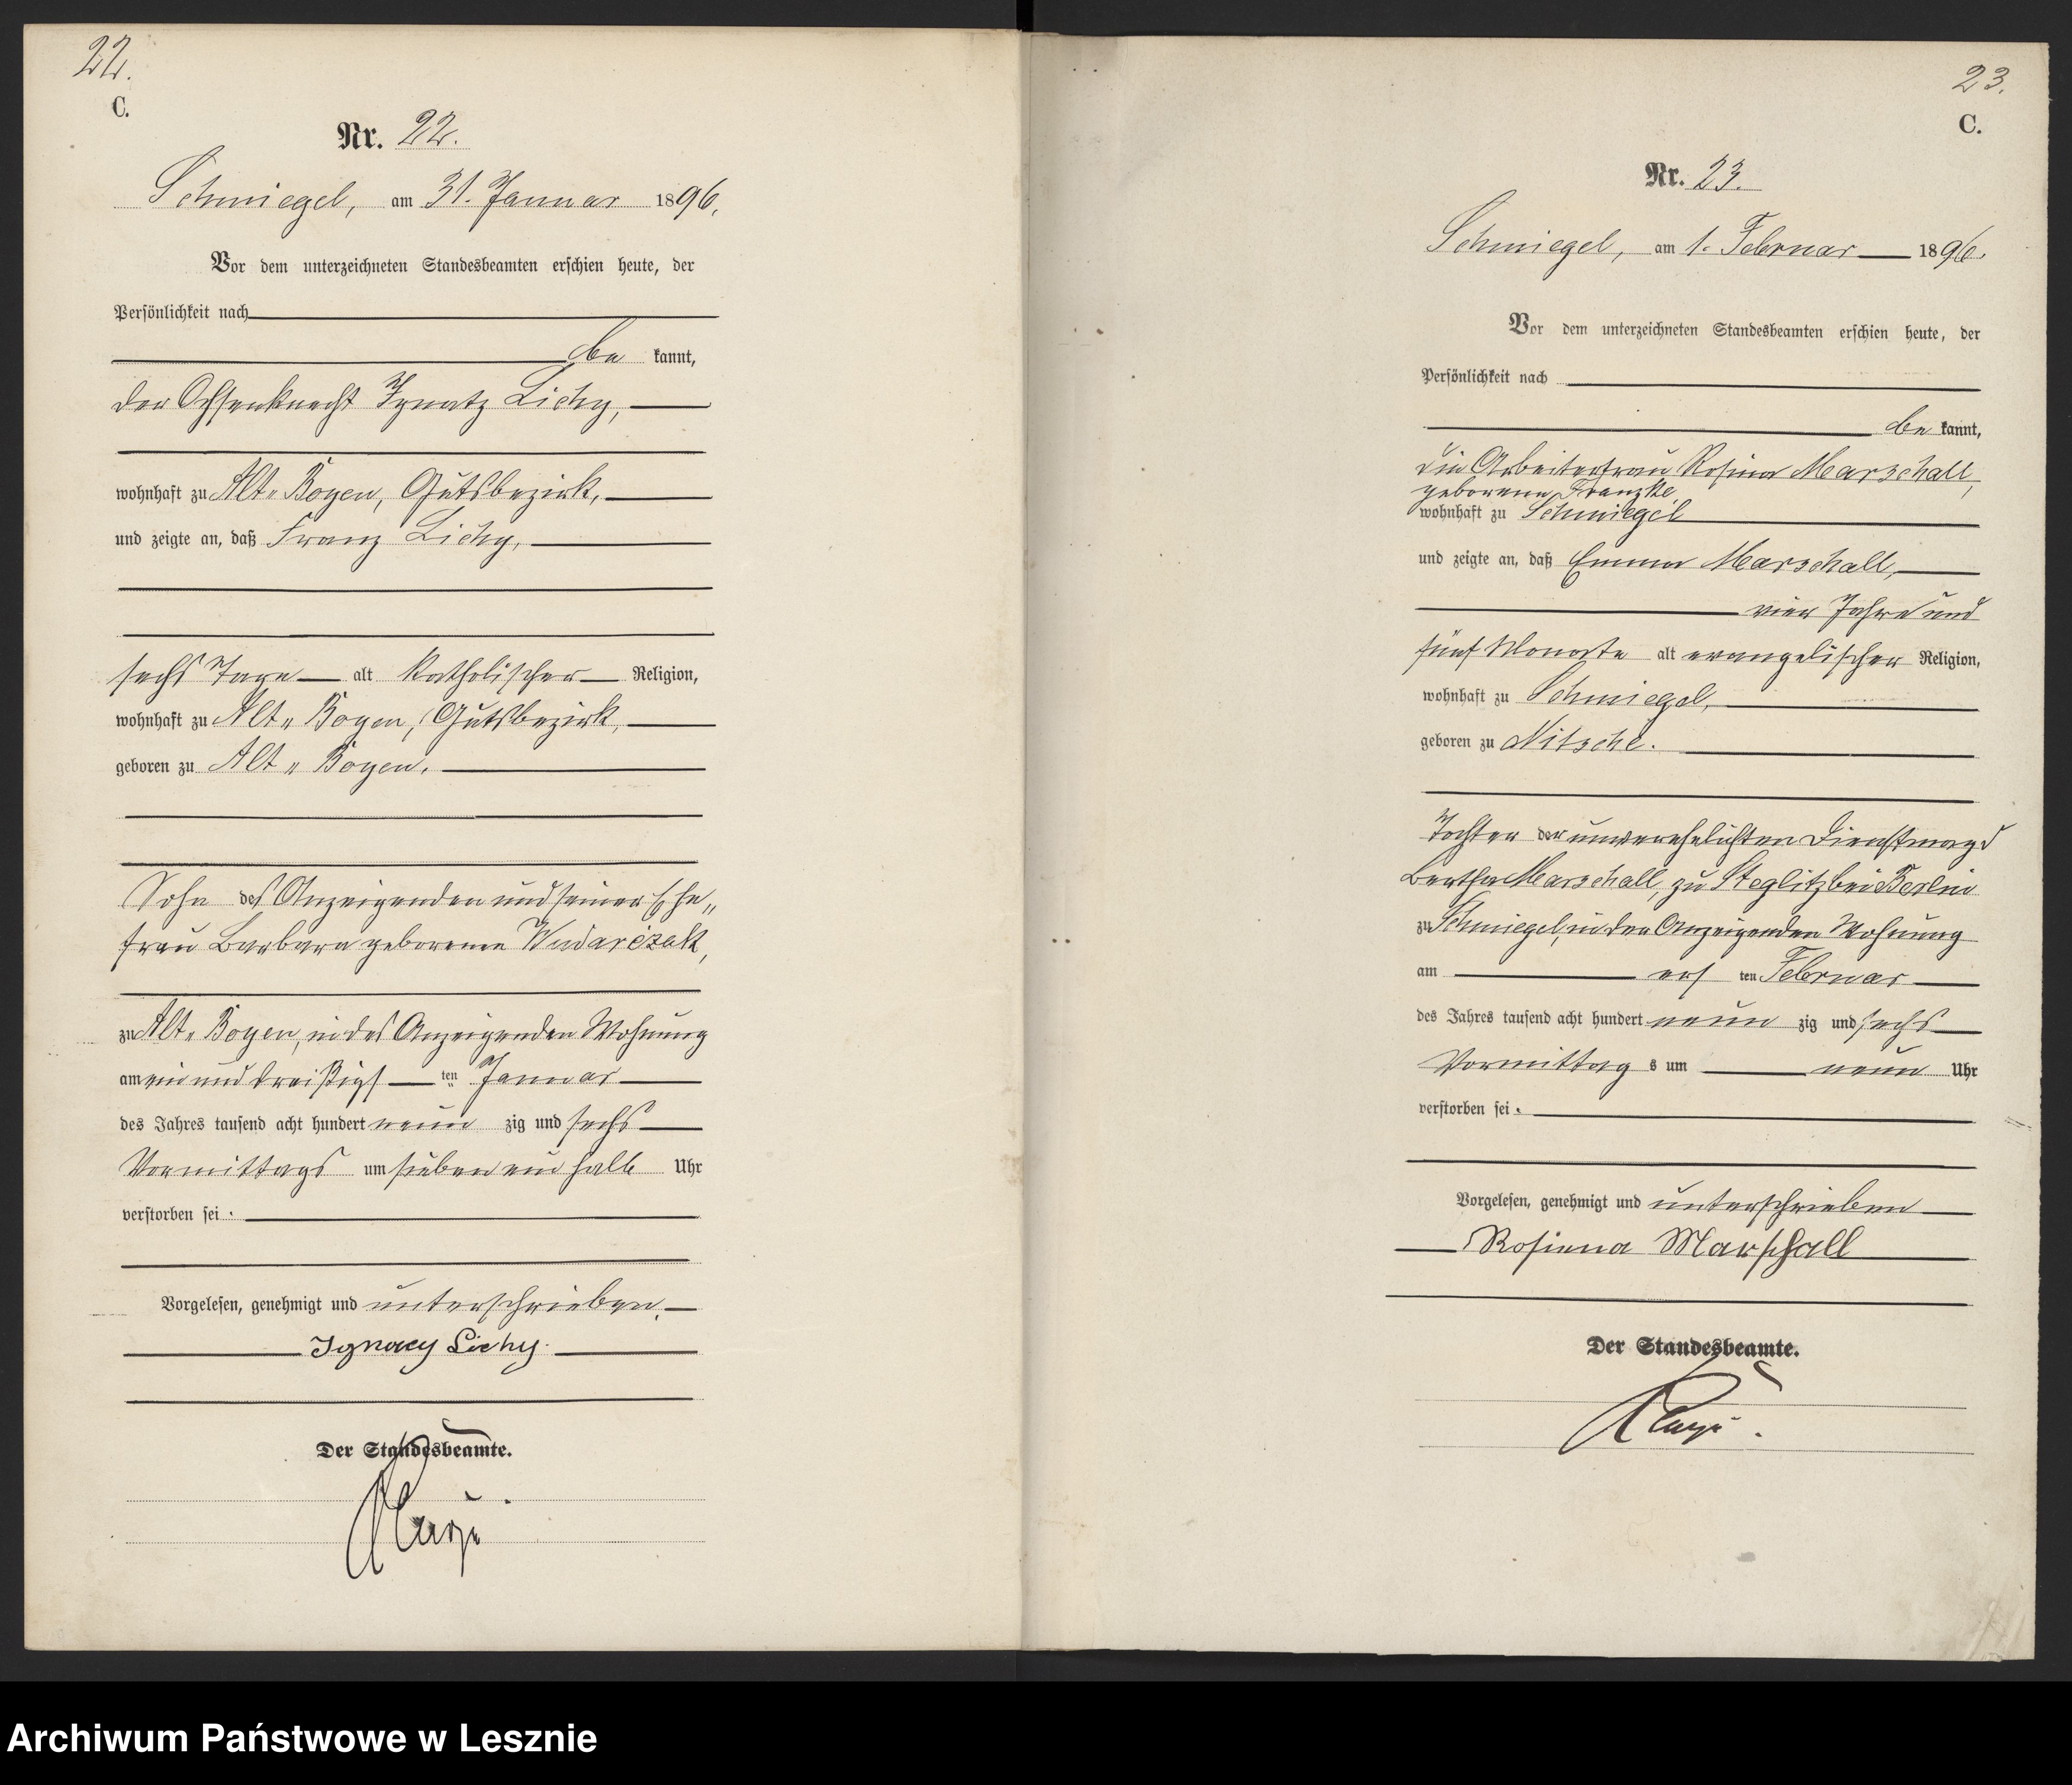 22.
C.
Nr. 22.
Schmiegel, am 31. Januar 1896.
Vor dem unterzeichneten Standesbeamten erschien heute, der
Persönlichkeit nach
be kannt,
der Ochsenknecht Ignatz Lichy,
wohnhaft zu Alt-Boyen, Gutsbezirk,
und zeigte an, daß Franz Lichy,
sechs Tage alt katholischer Religion,
wohnhaft zu Alt-Boyen, Gutsbezirk,
geboren zu Alt-Boyen.
Sohn des Anzeigenden und seiner Ehe-
frau Barbara geborenen Wudarczak,
zu Alt-Boyen, in des Anzeigenden Wohnung
am ein und dreißigsten Januar
des Jahres tausend acht hundert neun zig und sechs
Vormittags um sieben ein halb Uhr
verstorben sei.
Vorgelesen, genehmigt und unterschrieben.
Ignacy Lichy.
Der Standesbeamte.
23.
C.
Nr. 23.
Schmiegel, am 1. Februar 1896.
Vor dem unterzeichneten Standesbeamten erschien heute, der
Persönlichkeit nach
be kannt,
die Arbeiterfrau Rosina Marschall,
geborene Franzke,
wohnhaft zu Schmiegel
und zeigte an, daß Emma Marschall,
vier Jahre und
fünf Monate alt evangelischer Religion,
wohnhaft zu Schmiegel,
geboren zu Nitsche.
Tochter der unverehelichten Dienstmagd
Bertha Marschall, zu Steglitz bei Berlin
zu Schmiegel, in der Anzeigenden Wohnung
am ersten Februar
des Jahres tausend acht hundert neun zig und sechs
Vormittag s um neun Uhr
verstorben sei.
Vorgelesen, genehmigt und unterschrieben
Rosiena Marschall
Der Standesbeamte.
Archiwum Państwowe w Lesznie